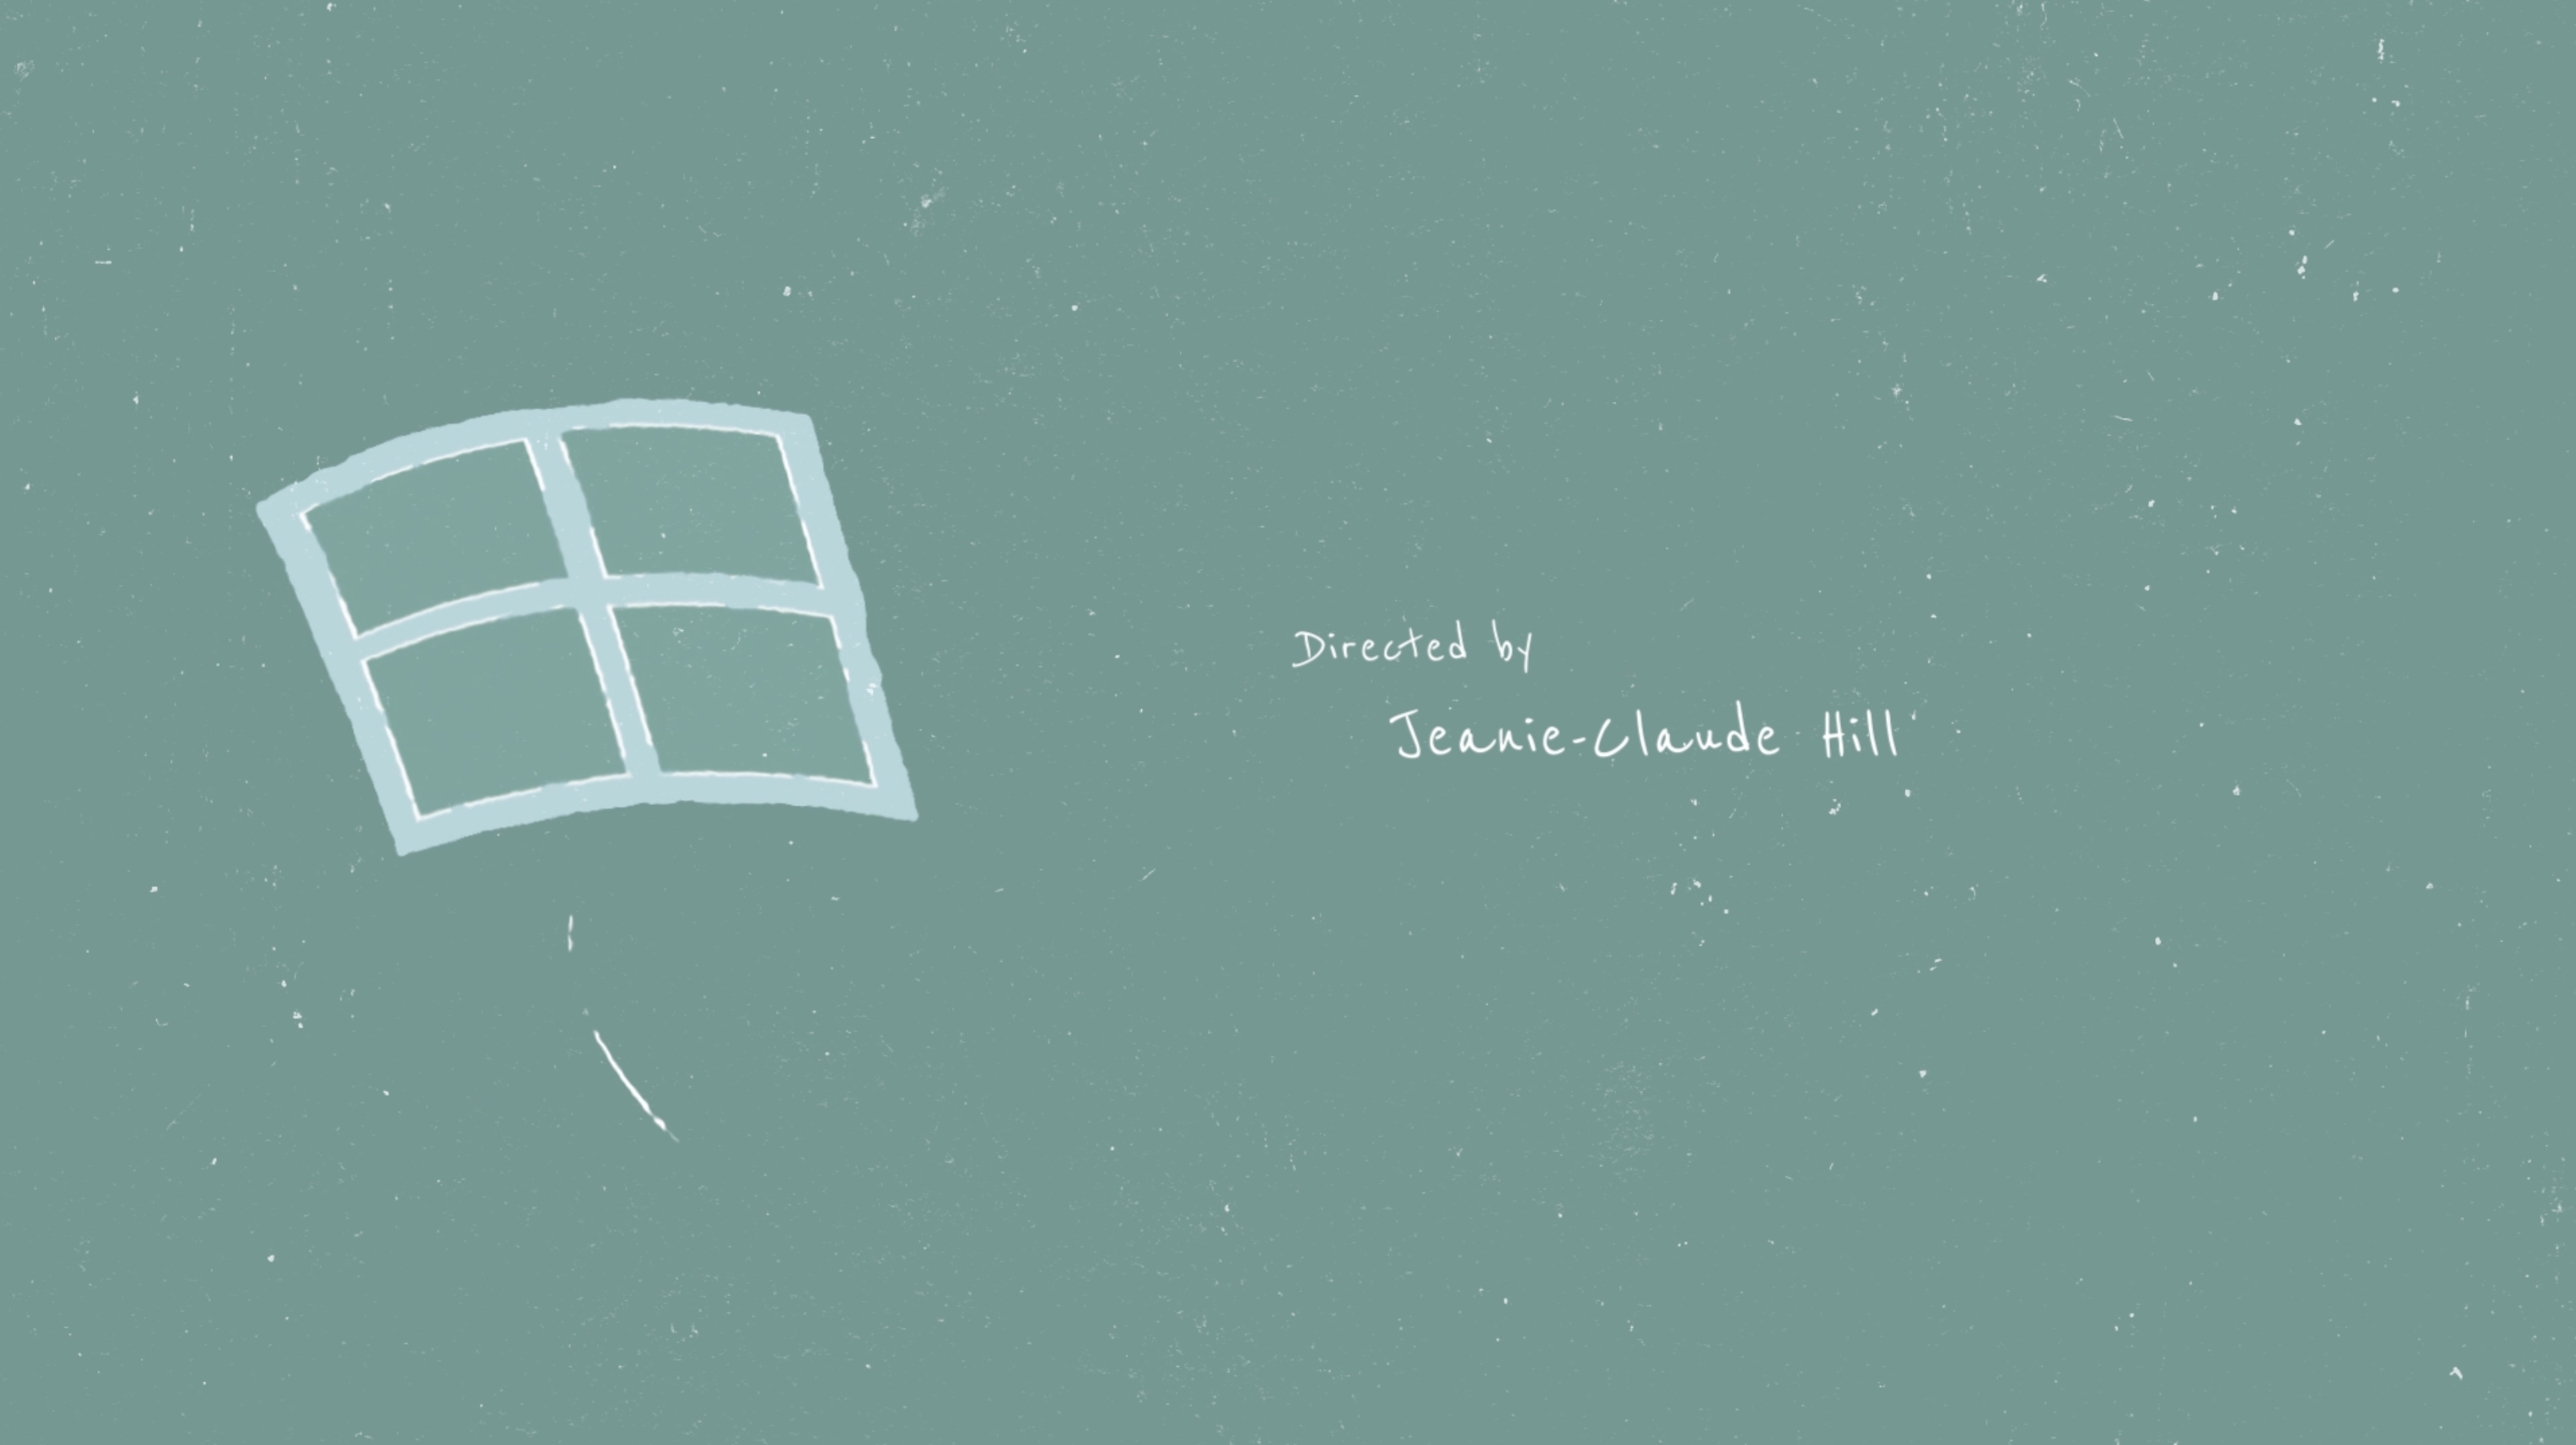 Directed by
Jeanie-Claude Hill